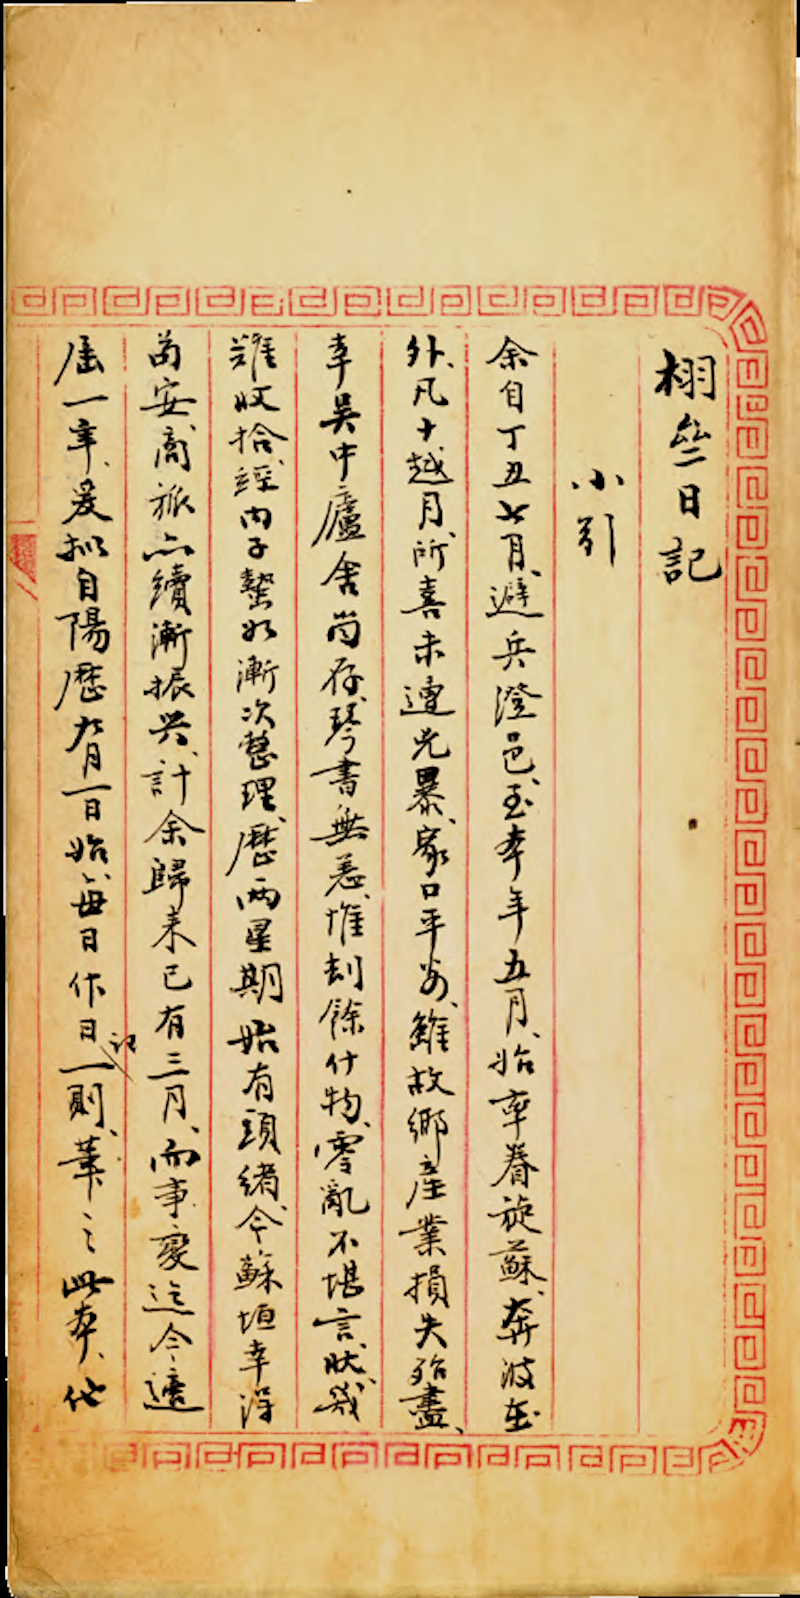 栩叁日記
小引
余自丁丑七月、避兵澄邑、至本年五月、始率眷旋蘇、奔波在
外、凡十越月、所喜未遭兇暴、家口平安、雖故鄉產業損失殆盡、
幸吳中廬舍尚存、琴書無恙、惟刦餘什物、零亂不堪言狀、幾
難收拾、經內子蟄如漸次整理、歷兩星期始有頭緒、今蘇垣幸得
苟安、商旅亦續漸振兴、計余歸来已有三月、而事變迄今適
屆一年、爰拟自陽歷九月一日始、每日作日記一則、筆之此本、他